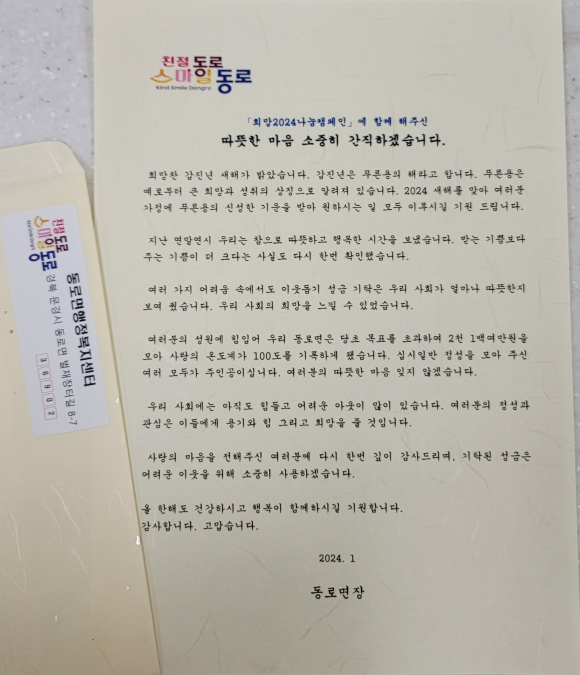 친절 도로
스마일 동로
Kind Smile Dongro
「희망2024나눔캠페인」에 함께 해주신
따뜻한 마음 소중히 간직하겠습니다.
희망찬 갑진년 새해가 밝았습니다. 갑진년은 푸른용의 해라고 합니다. 푸른용은
예로부터 큰 희망과 성취의 상징으로 알려져 있습니다. 2024 새해를 맞아 여러분
가정에 푸른용의 신성한 기운을 받아 원하시는 일 모두 이루시길 기원 드립니다.
지난 연말연시 우리는 참으로 따뜻하고 행복한 시간을 보냈습니다. 받는 기쁨보다
주는 기쁨이 더 크다는 사실도 다시 한번 확인했습니다.
여러 가지 어려움 속에서도 이웃돕기 성금 기탁은 우리 사회가 얼마나 따뜻한지
보여 줬습니다. 우리 사회의 희망을 느낄 수 있었습니다.
여러분의 성원에 힘입어 우리 동로면은 당초 목표를 초과하여 2천 1백여만원을
모아 사랑의 온도계가 100도를 기록하게 됐습니다. 십시일반 정성을 모아 주신
여러 모두가 주인공이십니다. 여러분의 따뜻한 마음 잊지 않겠습니다.
우리 사회에는 아직도 힘들고 어려운 이웃이 많이 있습니다. 여러분의 정성과
관심은 이들에게 용기와 힘 그리고 희망을 줄 것입니다.
사랑의 마음을 전해주신 여러분께 다시 한번 깊이 감사드리며, 기탁된 성금은
어려운 이웃을 위해 소중히 사용하겠습니다.
올 한해도 건강하시고 행복이 함께하시길 기원합니다.
감사합니다. 고맙습니다.
2024. 1
동로면장
친절 도로
스마일 동로
동로면행정복지센터
경북 문경시 동로면 벌재장터길 8-7
36902